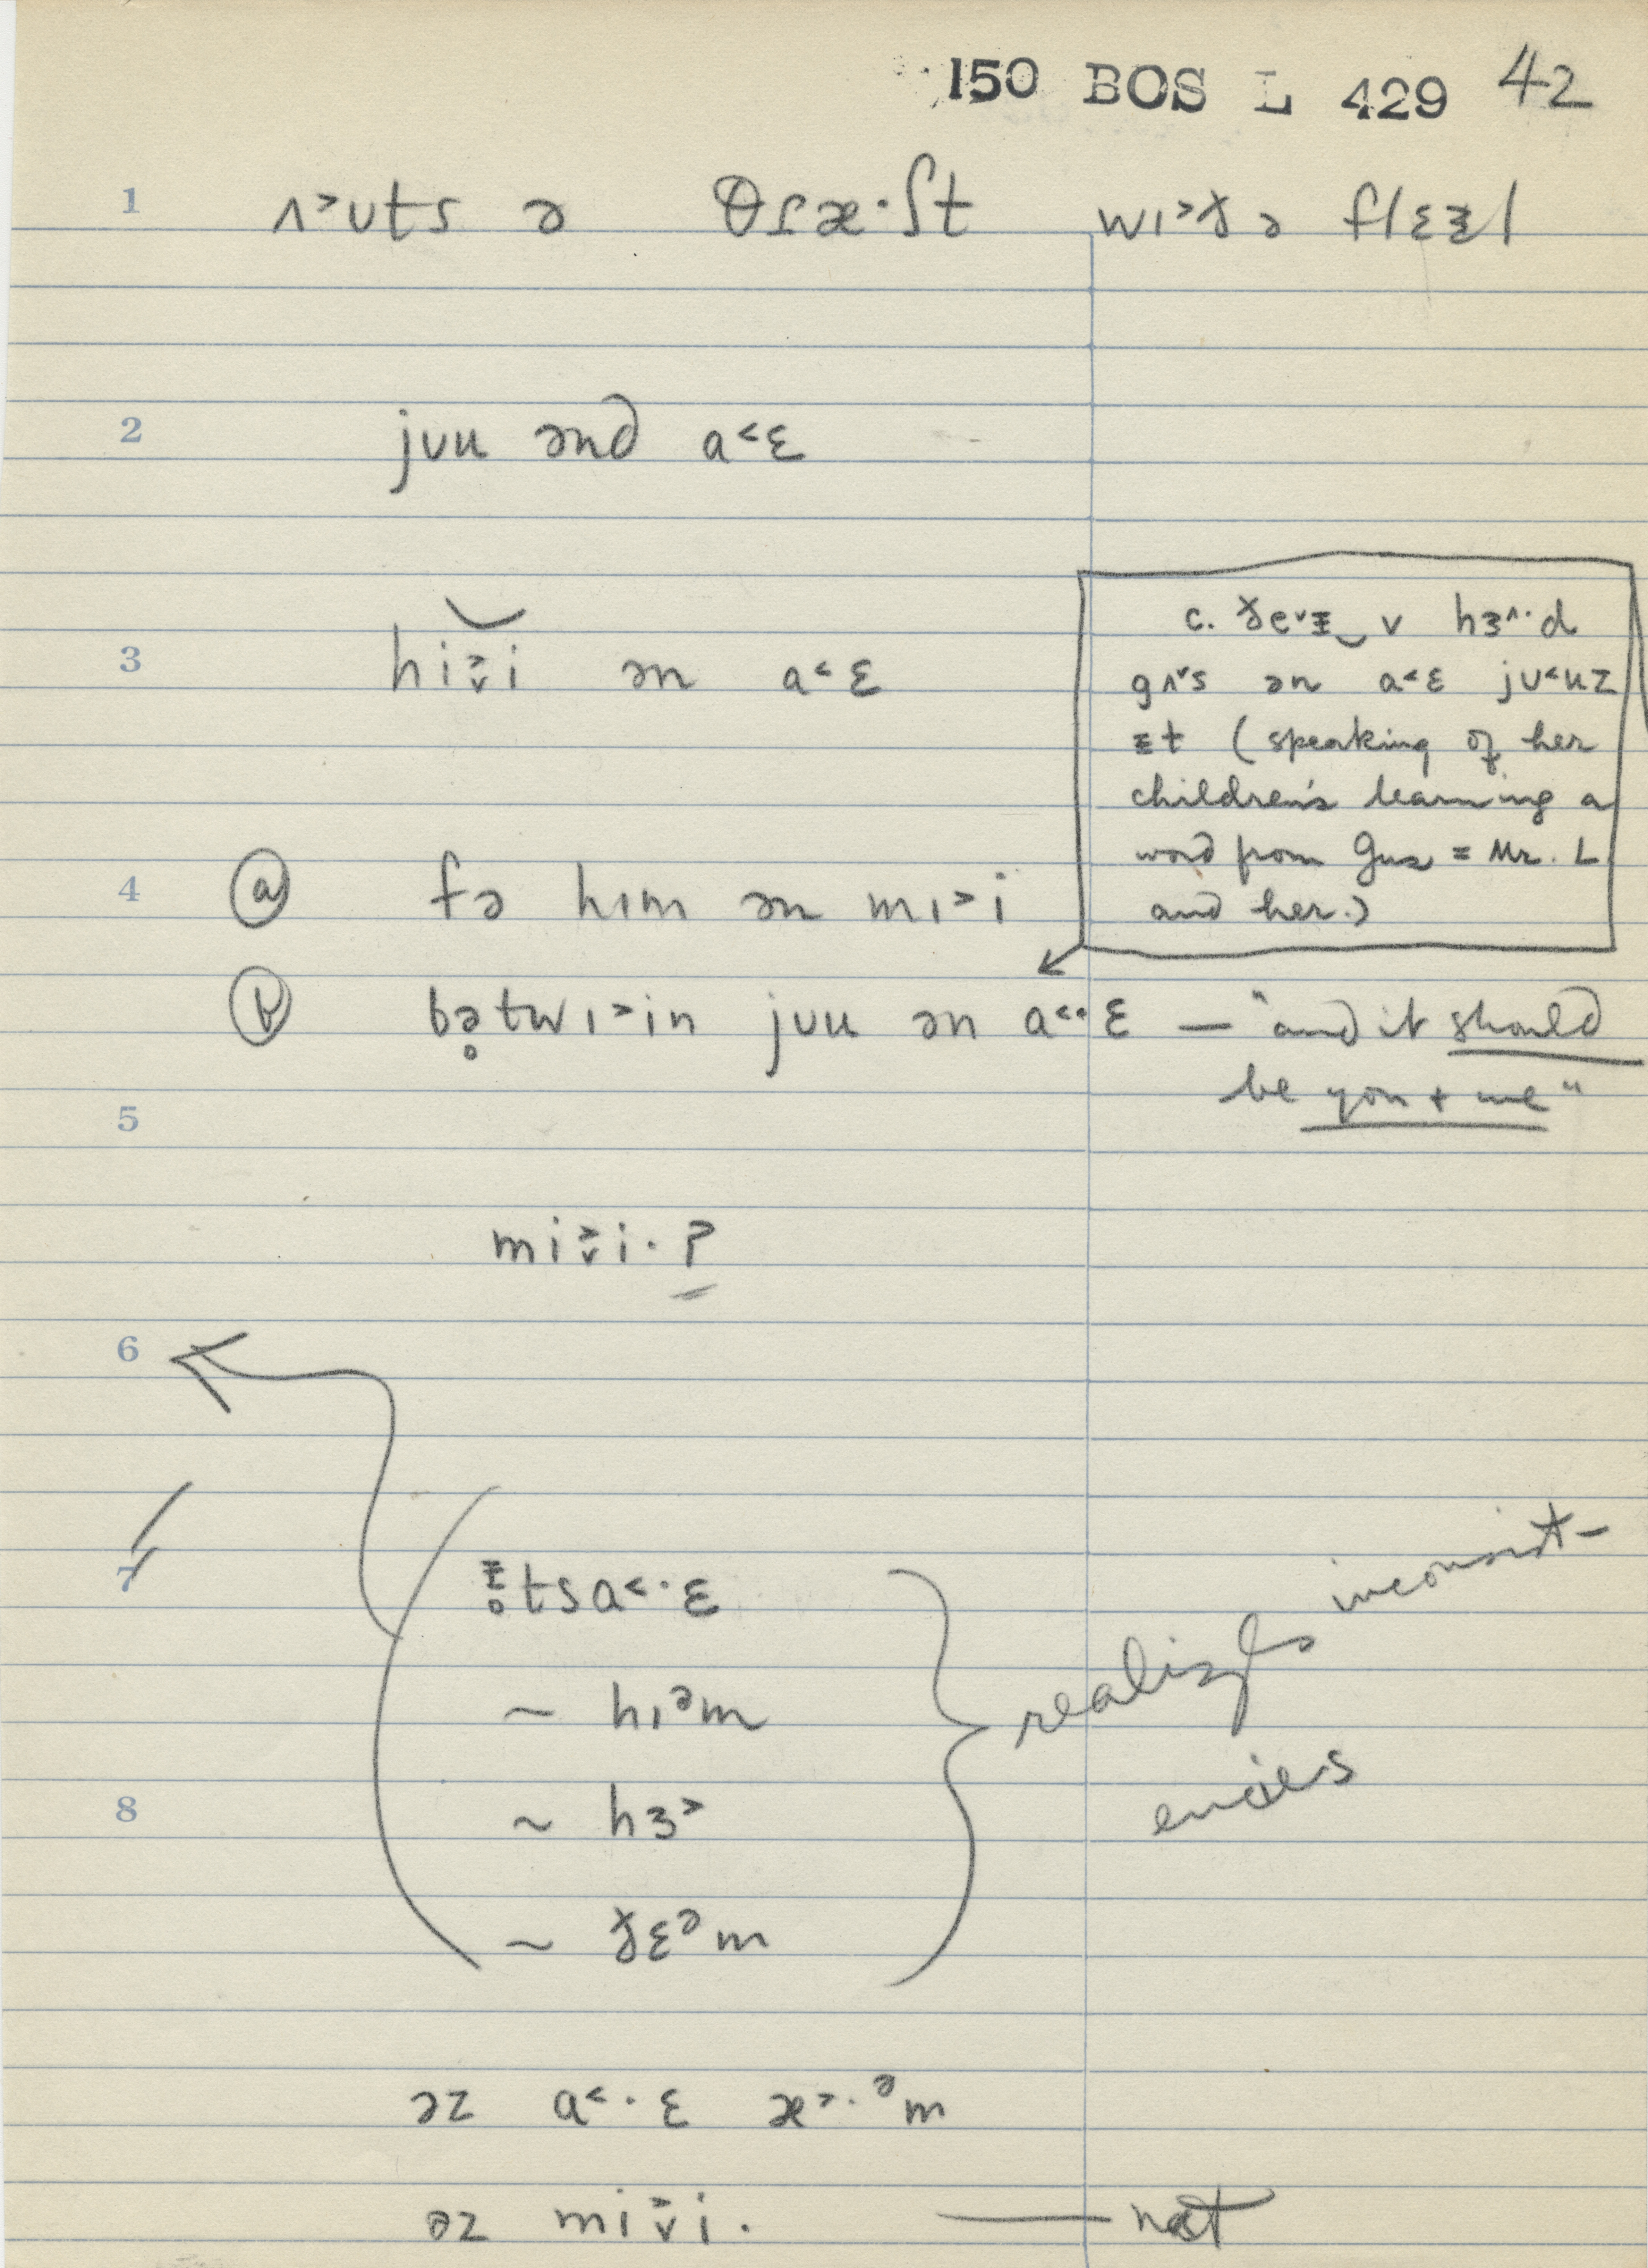 150 BOS L 429 42
1 ʌ˃ʊts ə θɾæ·ʃt wɪ˃ðə flɛᵻl
2 jʊu ənd a˂ɛ
3 hi˅˃i ən a˂ɛ
c. ðeᵛᵻ‿v hɜ^·d
gʌ˅s ən a˂ɛ jʊ˂uz
ᵻt (speaking of her
children's learning a
word from Gus = Mr. L
and her.)
4 ⓐ fə hɪm ən mɪ˃i
ⓑ bə̥twɪ˃in jʊu ən a˂·ɛ — "and it should
be you + me"
5
mi˅˃i· ?
6
7 ᵻ̥tsa˂·ɛ
~ hɪᵊm
~ hɜ˃
8
~ ðɛᵊm
realizes inconsist-
encies
əz a˂·ɛ æ˃·ᵊm
əz mi˅˃i. — not